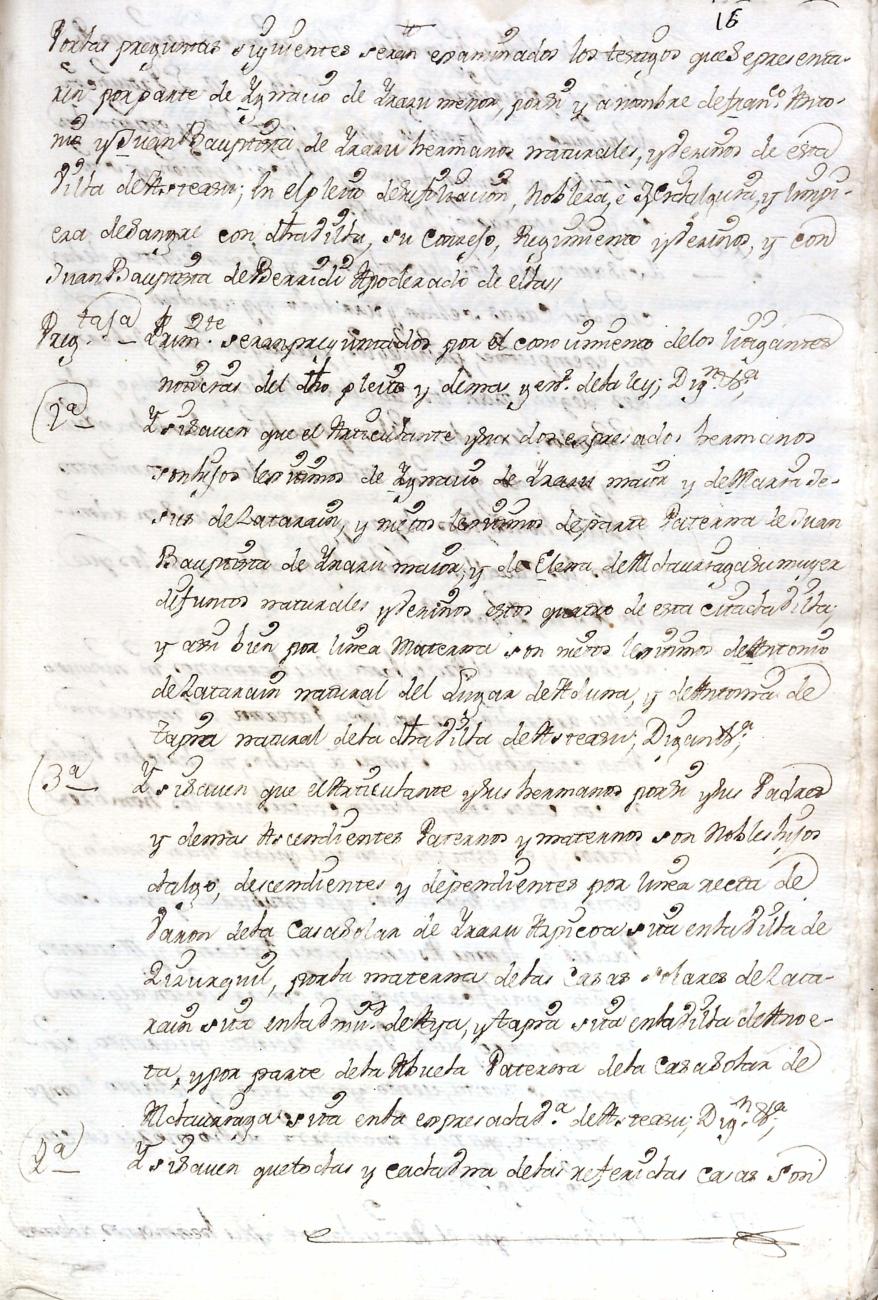 15
Por las preguntas siguientes seran examinados los testigos que se presenta-
ren por parte de Ygnacio de Yrazu menor, por si y a nombre de fran.co Anto-
nio y Juan Bauptista de Yrazu hermanos naturales, y vezinos de esta
Villa de Asteasu; En el pleito de su filiacion, Nobleza, e Hidalguia, y Limpi-
eza de Sangre con dha Villa, su Conzejo, Regimiento y Vezinos, y con
Juan Bauptista de Berridi Apoderado de ellas
Preg.tas 1a Prim.te seran preguntados por el conocimiento de los litigantes
noticias del dho pleito y demas gen.s de la ley; Dig.n &a
2a Y si saven que el Articulante y sus dos expresados hermanos
son hijos lexitimos de Ygnacio de Yrazu maior y de Maria Je-
sus de Latarain, y nietos lexitimos de parte Paterna de Juan
Bauptista de Yrazu maior, y de Elena de Aldavarraga su muger
difuntos naturales y vezinos estos quatro de esta citada Villa;
y assi bien por linea Materna son nietos lexitimos de Antonio
de Latarain natural del Lugar de Aduna, y de Antonia de
Tapia natural de la dha Villa de Asteasu; Digan &a
3a Y si saven que el Articulante y sus hermanos por si y sus Padres
y demas Ascendientes Paternos y maternos son Nobles hijos
dalgo, descendientes y dependientes por linea recta de
Varon de la Casa Solar de Yrazu Azpicoa sita en la Villa de
Zizurquil, por la materna de las Casas solares de Lata-
rain sita en la de Aya, y Tapia sita en la Villa de Anoe-
ta, y por parte de la Abuela Paterna de la Casa Solar de
Aldavarraga sita en la expresada V.a de Asteasu; Dig.n &a
4a Y si saven que todas y cada una de las referidas Casas son